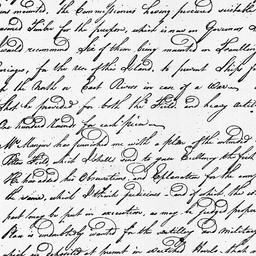 ments. The Commissioners having procured suitable
Timber for the purpose, which is now on Governors
would recommend Six of them being mounted on travelling
Carriages, for the use of the Island, to prevent Ships f
up the North or East Rivers in case of a War
Shot be provided for both the Hills and heavy artil
One hundred rounds for each piece
Mr Mangin has furnished me with a plan of the intended
Plan Hill, which I shall send to your Excellency the first
He has made his Observations, and Explanation for the
the same, which I think Judicious - and of which, the
part may be put in execution, as may be judged proper
Plan is immediately wanted for the artillery and military
which are deposited at present in wretched Hovels - that